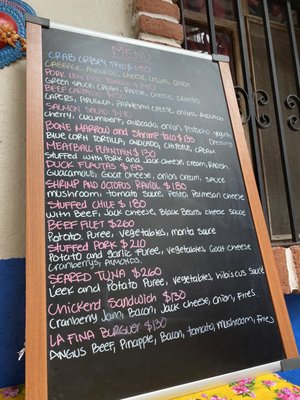 MENU
CRAB CRISPY TACO $150
CABBAGE, AVOCADO, cheese, cream, onion
PORK
Green sauce, onion, radish, cheese, cilantro
BEEF CARPACCIO
CAPERS, ARUGULA, PARMESAN CHEESE, onions, AVOCADO
SALMON SALAD $190
cherry, cucumbert, avocado, onion, Pistacho yogurth
Dressing
BONE MARROW and Shrimp taco $135
BLUE CORN TORTILLA, AVOCADO, CHIPOTLE, CREAM
MEATBALL PLANTAIN $130
Stuffed with Pork and Jack cheese, cream, RADISH
DUCK FLAUTAS $145
Guacamole, Goat cheese, onion, cream
SHRIMP AND OCTOPUS RAVIOL $180
mushroom, tomato sauce, Pesto, Parmesan cheese
STUFFED CHILE $180
with Beef, JACK cheese, Black Beans, cheese sauce
BEEF FILET $260
Potato Puree, vegetables, morita sauce
STUFFED PORK $210
Potato and garlic Puree, vegetables, Goat cheese
Cranberrys, ALMONDS.
SEARED TUNA $260
Leek and Potato Puree, vegetables, hibiscus sauce
Chickend Sandwich $130
Cranberry Jam, Bacon, Jack cheese, onion, Fries
LA FINA BURGUER $130
ANGUS Beef, Pineapple, Bacon, tomato, mushroom, Fries